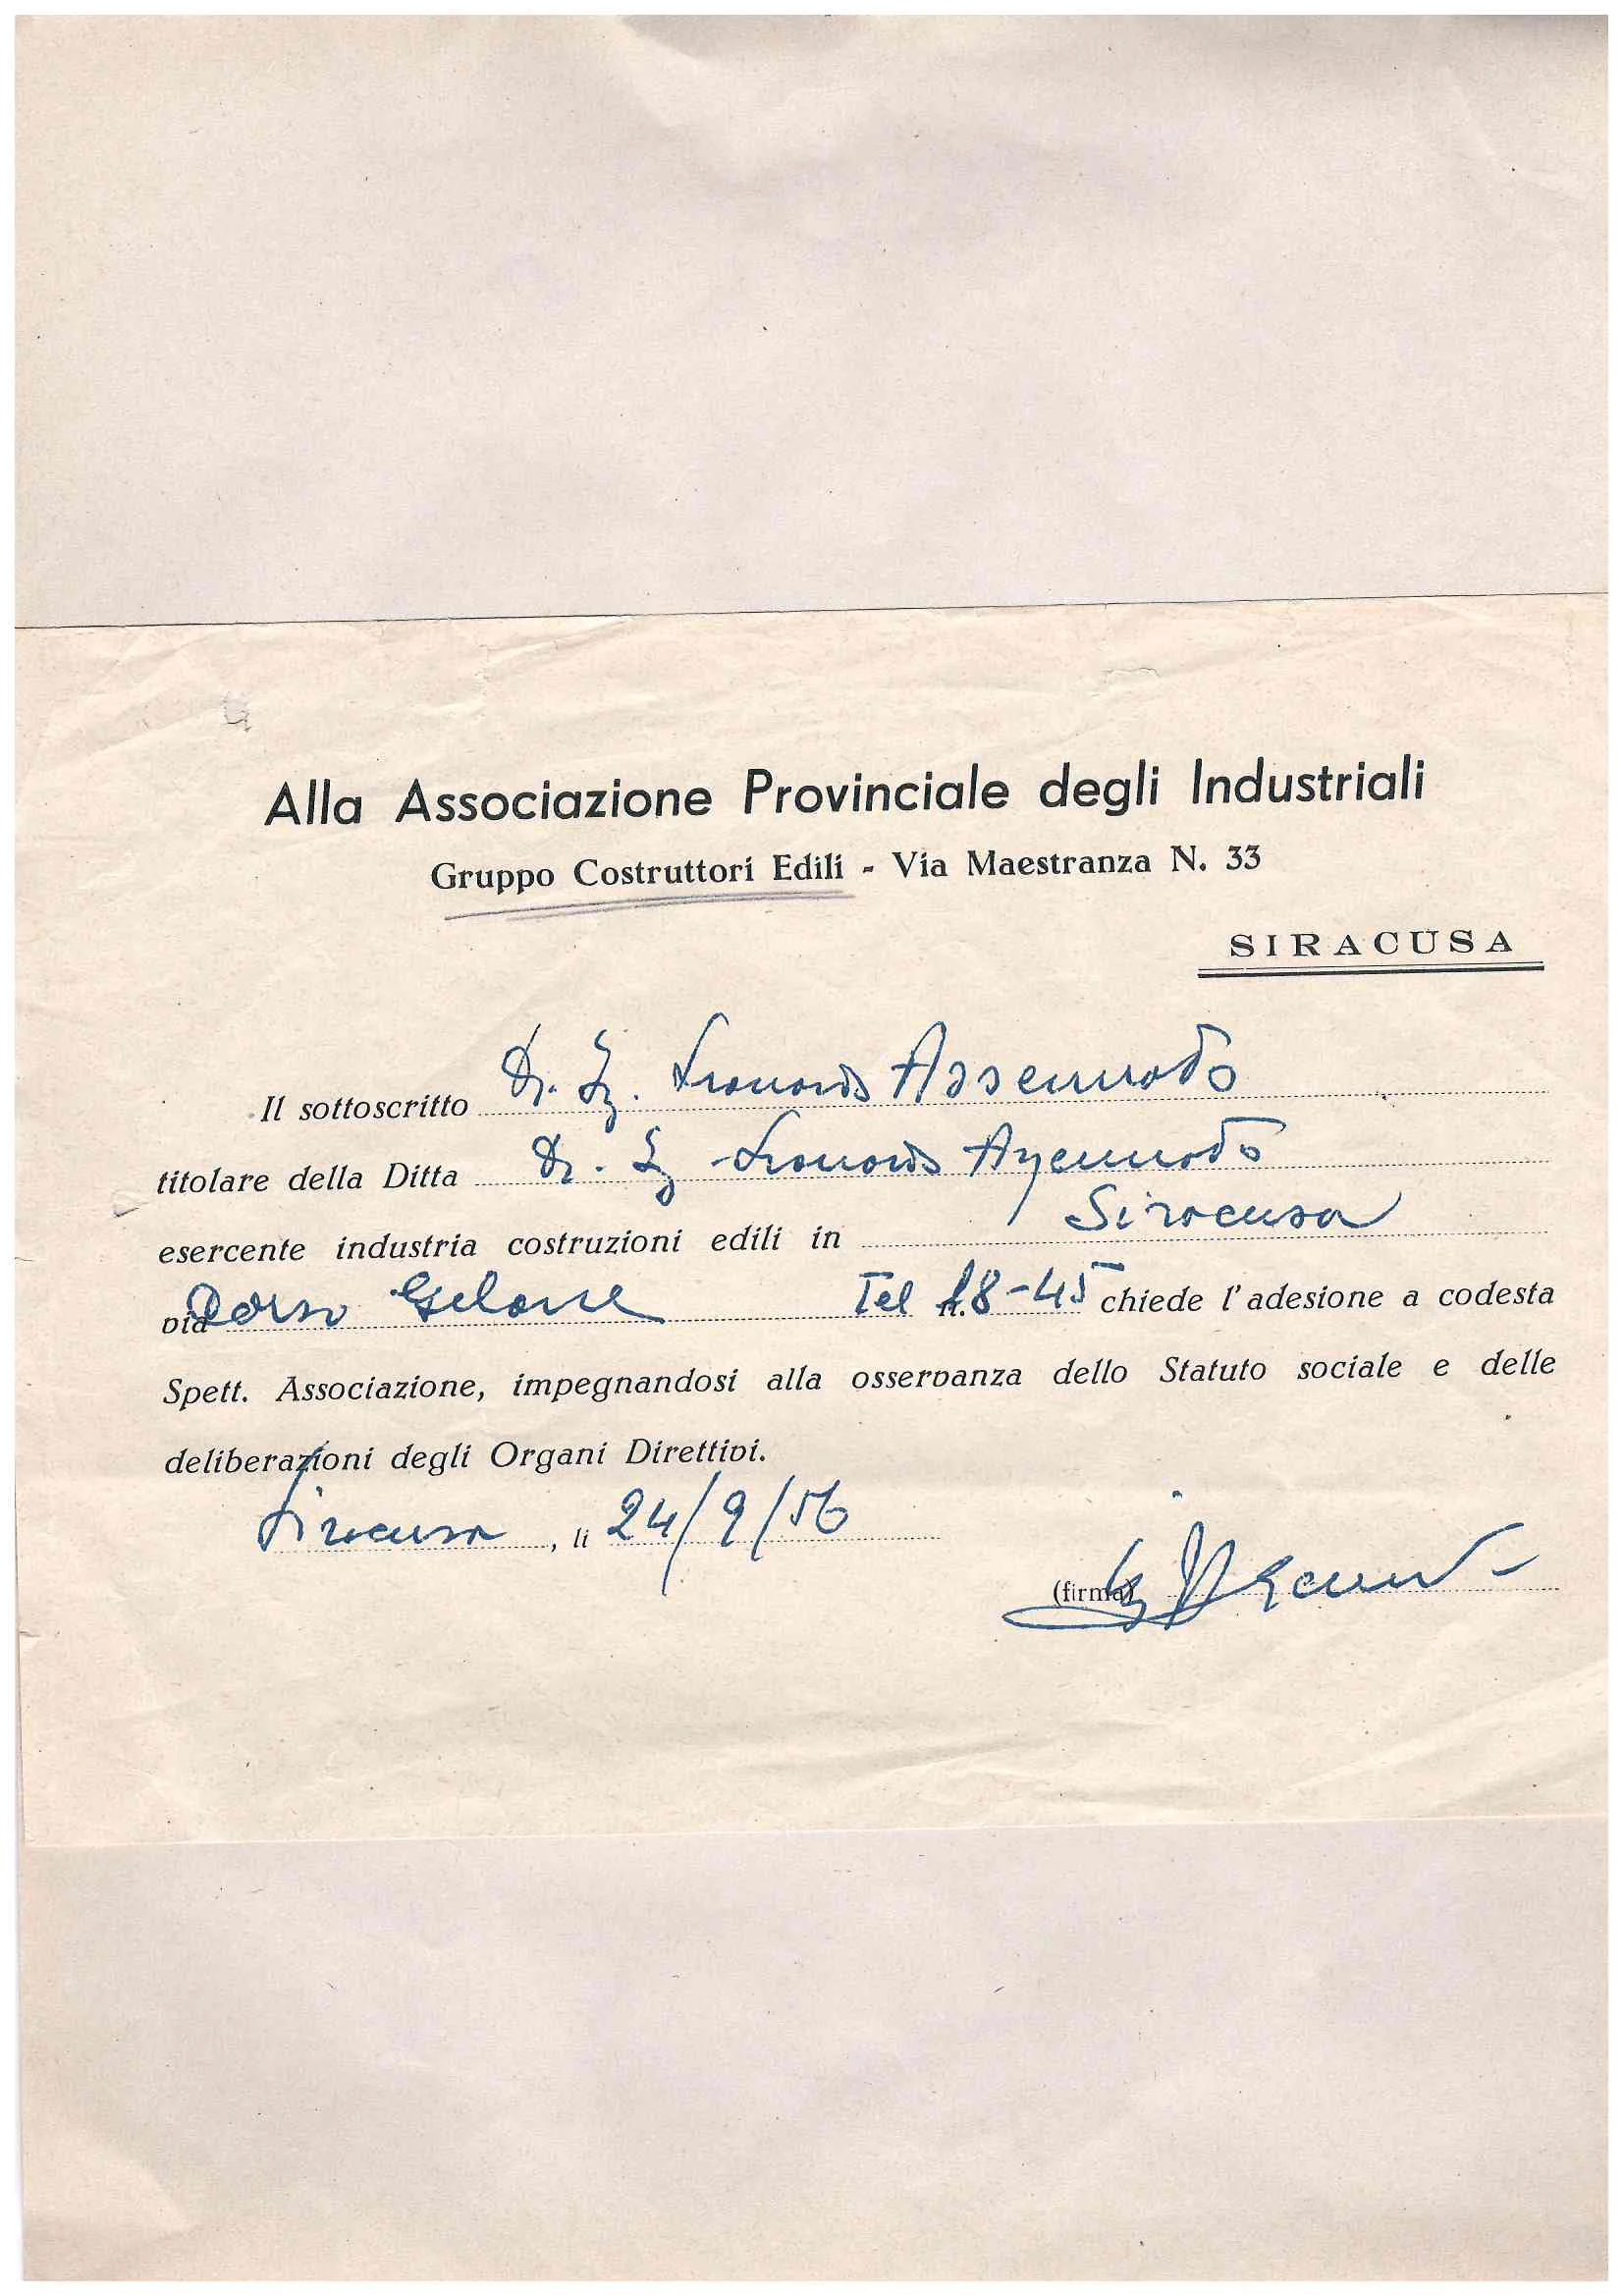 Alla Associazione Provinciale degli Industriali
Gruppo Costruttori Edili - Via Maestranza N. 33
SIRACUSA
Il sottoscritto Dr. Ing. Leonardo Assennato
titolare della Ditta Dr. Ing. Leonardo Assennato
esercente industria costruzioni edili in Siracusa
via Corso Gelone Tel n. 18-45 chiede l'adesione a codesta
Spett. Associazione, impegnandosi alla osservanza dello Statuto sociale e delle
deliberazioni degli Organi Direttivi.
Siracusa, li 24/9/56
(firma)